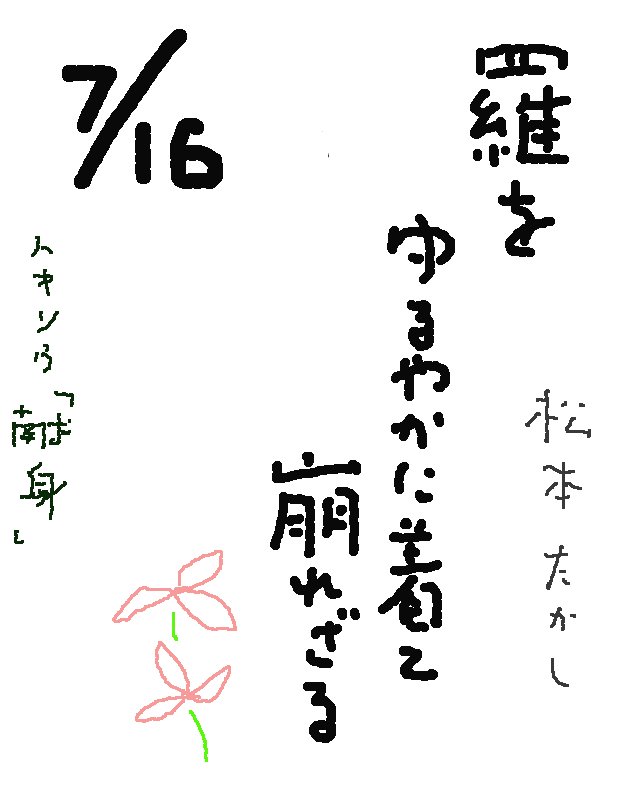 7/16
羅を
ゆるやかに着て
崩れざる
松本たかし
ハギソウ「献身」